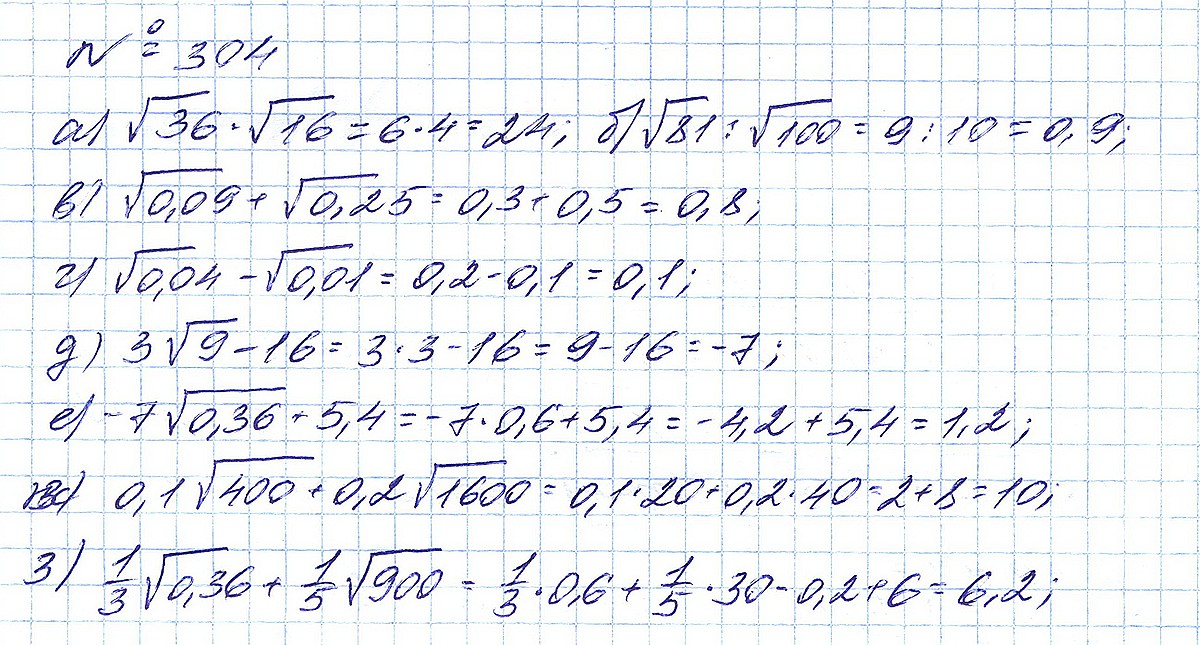 № 304
а) √36 · √16 = 6 · 4 = 24; б) √81 : √100 = 9 : 10 = 0,9;
в) √0,09 + √0,25 = 0,3 + 0,5 = 0,8;
г) √0,04 - √0,01 = 0,2 - 0,1 = 0,1;
д) 3√9 - 16 = 3 · 3 - 16 = 9 - 16 = -7;
е) -7√0,36 + 5,4 = -7 · 0,6 + 5,4 = -4,2 + 5,4 = 1,2;
ж) 0,1√400 + 0,2√1600 = 0,1 · 20 + 0,2 · 40 = 2 + 8 = 10;
з) 1/3 √0,36 + 1/5 √900 = 1/3 · 0,6 + 1/5 · 30 - 0,2 + 6 = 6,2;